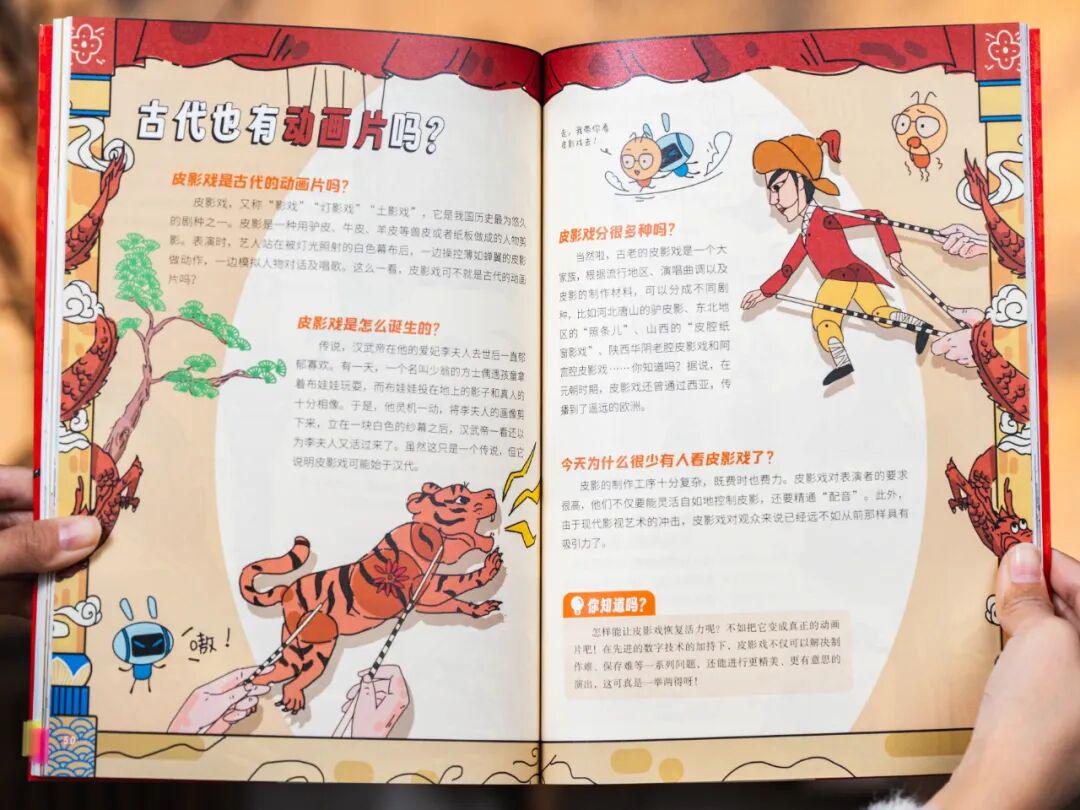 古代也有动画片吗？
皮影戏是古代的动画片吗？
皮影戏，又称“影戏”“灯影戏”“土影戏”，它是我国历史最为悠久
的剧种之一。皮影是一种用驴皮、牛皮、羊皮等兽皮或者纸板做成的人物剪
影。表演时，艺人站在被灯光照射的白色幕布后，一边操控薄如蝉翼的皮影
做动作，一边模拟人物对话及唱歌。这么一看，皮影戏可不就是古代的动画
片吗？
皮影戏是怎么诞生的？
传说，汉武帝在他的爱妃李夫人去世后一直郁
郁寡欢。有一天，一个名叫少翁的方士偶遇孩童拿
着布娃娃玩耍，而布娃娃投在地上的影子和真人的
十分相像。于是，他灵机一动，将李夫人的画像剪
下来，立在一块白色的纱幕之后，汉武帝一看还以
为李夫人又活过来了。虽然这只是一个传说，但它
说明皮影戏可能始于汉代。
嗷！
50
走，我带你看
皮影戏去！
皮影戏分很多种吗？
当然啦，古老的皮影戏是一个大
家族，根据流行地区、演唱曲调以及
皮影的制作材料，可以分成不同剧
种，比如河北唐山的驴皮影、东北地
区的“照条儿”、山西的“皮腔纸
窗影戏”、陕西华阴老腔皮影戏和阿
宫腔皮影戏……你知道吗？据说，在
元朝时期，皮影戏还曾通过西亚，传
播到了遥远的欧洲。
今天为什么很少有人看皮影戏了？
皮影的制作工序十分复杂，既费时也费力。皮影戏对表演者的要求
很高，他们不仅要能灵活自如地控制皮影，还要精通“配音”。此外，
由于现代影视艺术的冲击，皮影戏对观众来说已经远不如从前那样具有
吸引力了。
你知道吗？
怎样能让皮影戏恢复活力呢？不如把它变成真正的动画
片吧！在先进的数字技术的加持下，皮影戏不仅可以解决制
作难、保存难等一系列问题，还能进行更精美、更有意思的
演出，这可真是一举两得呀！